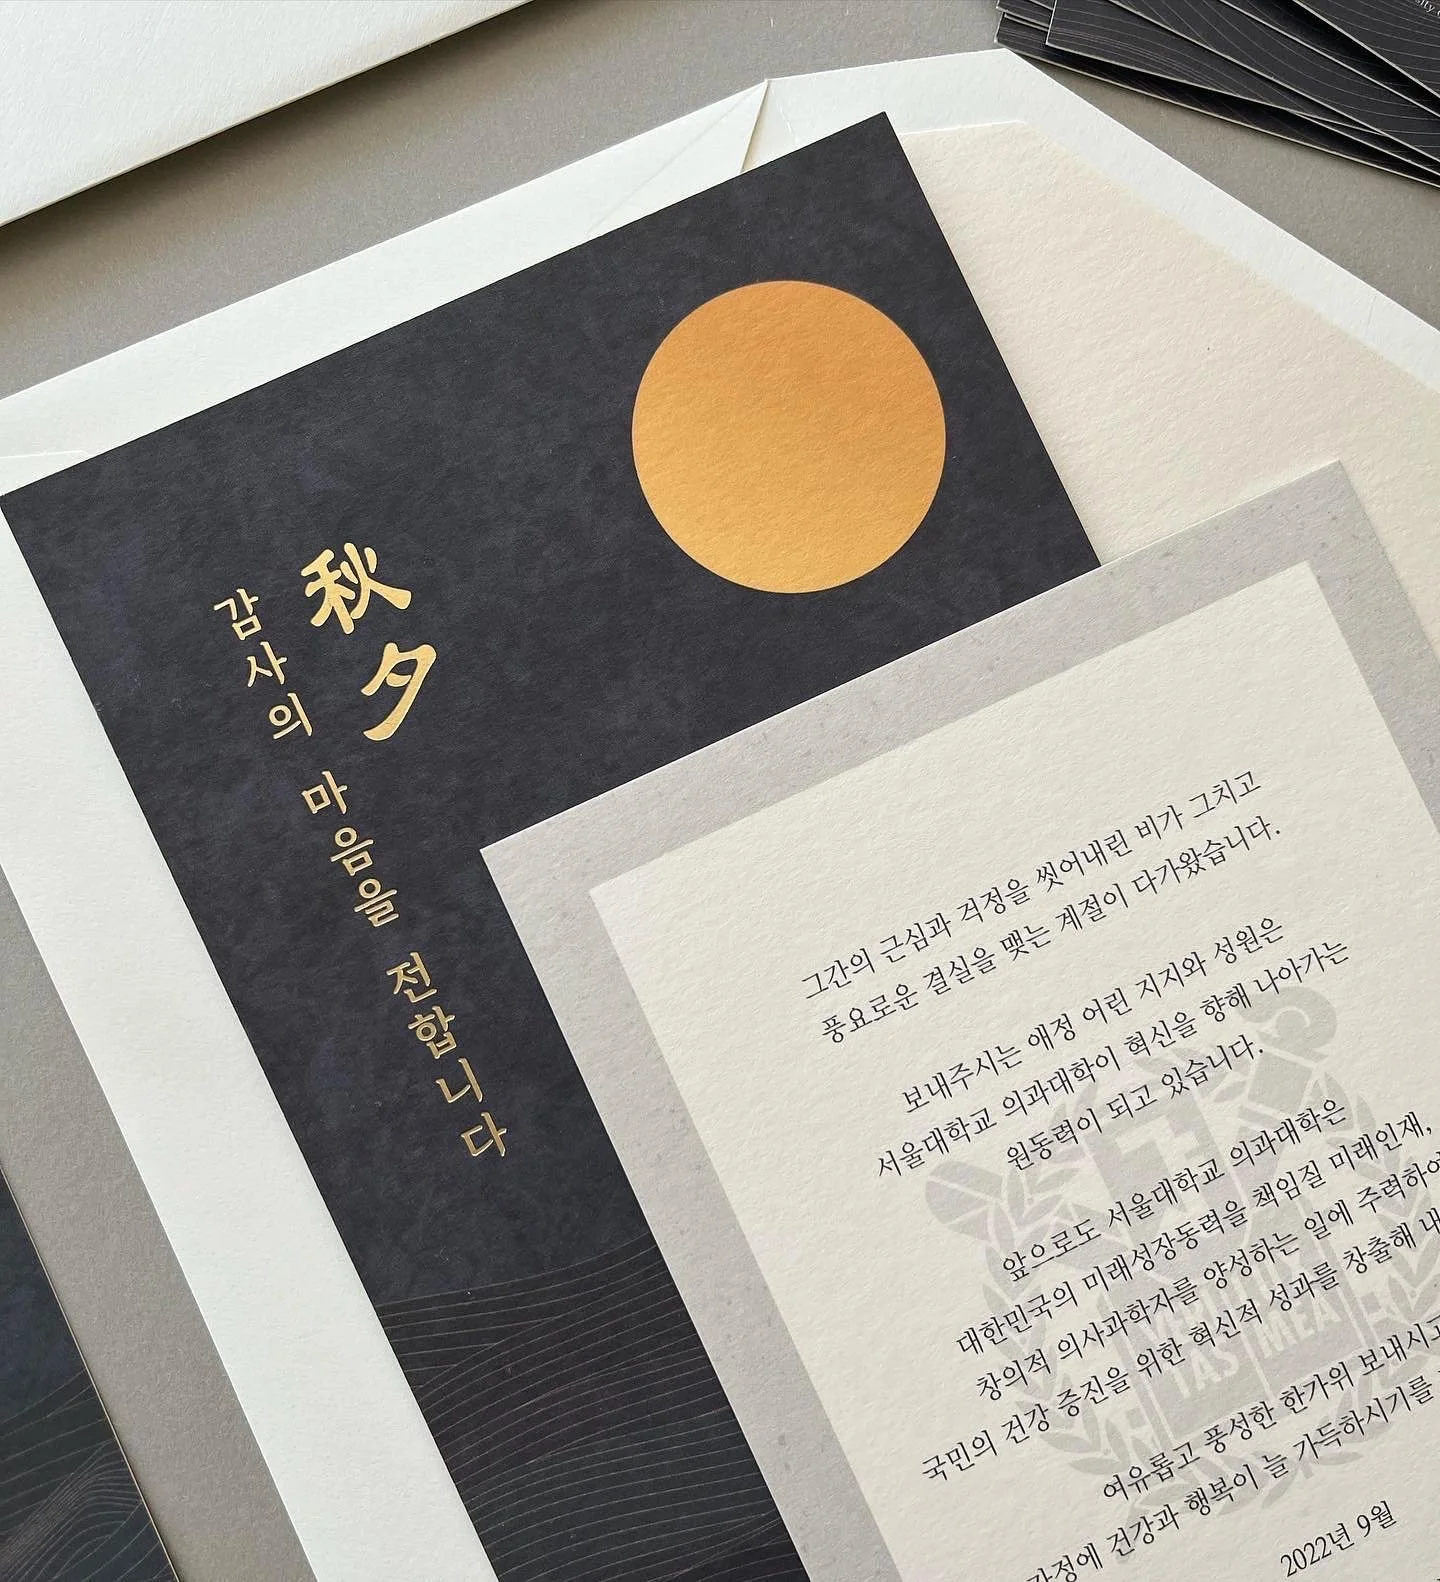 秋夕
감사의 마음을 전합니다
그간의 근심과 걱정을 씻어내린 비가 그치고
풍요로운 결실을 맺는 계절이 다가왔습니다.
보내주시는 애정 어린 지지와 성원은
서울대학교 의과대학이 혁신을 향해 나아가는
원동력이 되고 있습니다.
앞으로도 서울대학교 의과대학은
대한민국의 미래성장동력을 책임질 미래인재,
창의적 의사과학자를 양성하는 일에 주력하여
국민의 건강 증진을 위한 혁신적 성과를 창출해 내
여유롭고 풍성한 한가위 보내시고
가정에 건강과 행복이 늘 가득하시기를
2022년 9월
TAS MEA